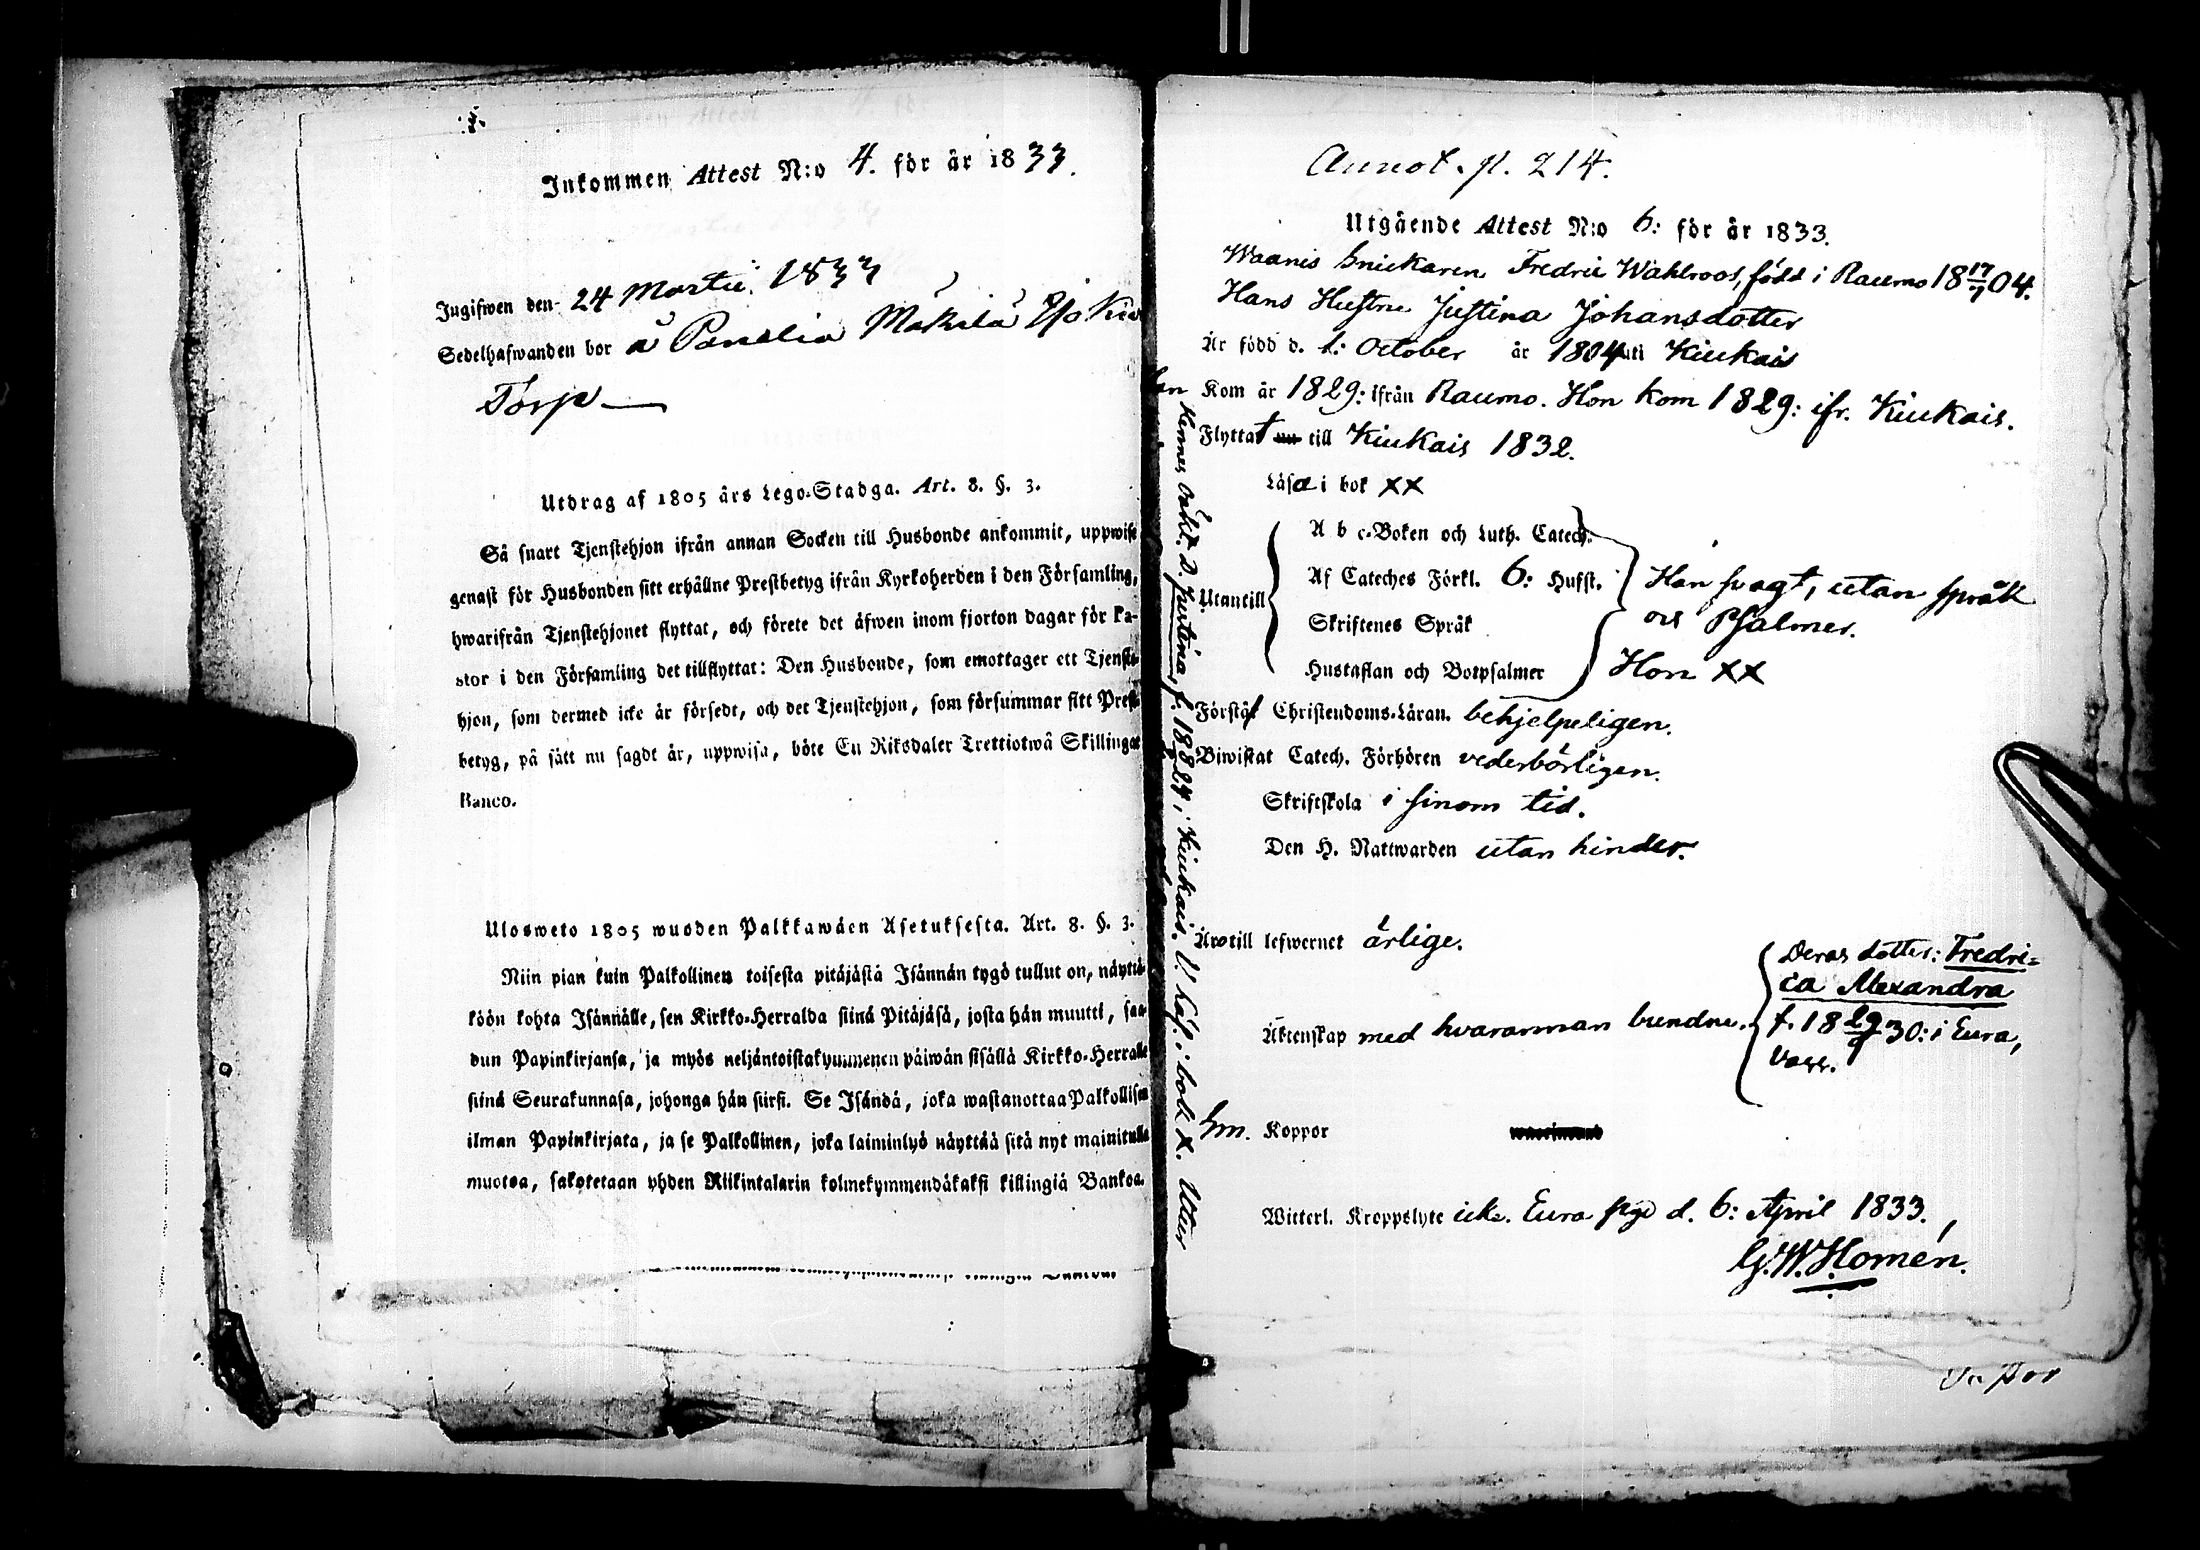 Inkommen Attest N:o 4. för år 1833.
Ingifwen den 24 Martii 1833
Sedelhafwanden bor å Panelia Mäkilä
Torp
Utdrag af 1805 års Lego-Stadga. Art. 8. §. 3.
Så snart Tjenstehjon ifrån annan Socken till Husbonde ankommit, uppwise
genast för Husbonden sitt erhållne Prestbetyg ifrån Kyrkoherden i den Församling,
hwarifrån Tjenstehjonet flyttat, och förete det äfwen inom fjorton dagar för Pa-
stor i den Församling det tillflyttat: Den Husbonde, som emottager ett Tjenste-
hjon, som dermed icke är försedt, och det Tjenstehjon, som försummar sitt Prest-
betyg, på sätt nu sagdt är, uppwisa, böte En Riksdaler Trettiotwå Skillingar
Banco.
Ulosweto 1805 wuoden Palkkawäen Asetuksesta. Art. 8. §. 3.
Niin pian kuin Palkollinen toisesta pitäjästä Isännän tygö tullut on, näyttä-
köön kohta Isännälle, sen Kirkko-Herralda siinä Pitäjäsä, josta hän muutti, saa-
dun Papinkirjansa, ja myös neljäntoistakymmenen päiwän sisällä Kirkko-Herralle
siinä Seurakunnasa, johonga hän siirsi. Se Isändä, joka wastanottaa Palkollisen
ilman Papinkirjata, ja se Palkollinen, joka laiminlyö näyttää sitä nyt mainitulla
muotoa, sakotetaan yhden Riikintalarin kolmekymmendäkaksi killingiä Bankoa.
Annot. p. 214.
Utgående Attest N:o 6: för år 1833.
Waanis Snickaren Fredric Wahlroos, född i Raumo 18 17/7 04.
Hans Hustru Justina Johansdotter
Är född d. 1: October år 1804 uti Kiukais
Kom år 1829: ifrån Raumo. Hon kom 1829: ifr. Kiukais.
Flyttat nu till Kiukais 1832.
Läsa i bok xx
Utantill
A b c-Boken och Luth. Catech.
Af Cateches Förkl. 6: Hufst.
Skriftenes Språk
Hustaflan och Botpsalmer
Han svagt, utan språk
och Psalmer.
Hon xx
Förstå Christendoms-Läran. behjelpeligen.
Biwistat Catech. Förhören vederbörligen.
Skriftskola i sinom tid.
Den H. Nattwarden utan hinder.
Äro till lefwernet ärlige.
Äktenskap med hvarannan bundne.
Deras dotter: Fredri=
ca Alexandra
f. 18 29/9 30: i Eura,
vacc.
Koppor
Witterl. Kroppslyte icke. Eura pgd d. 6: April 1833.
G. W. Homén.
D. Justina, f. 1824, i Kiukais. U. Läs. i bok x. Utter